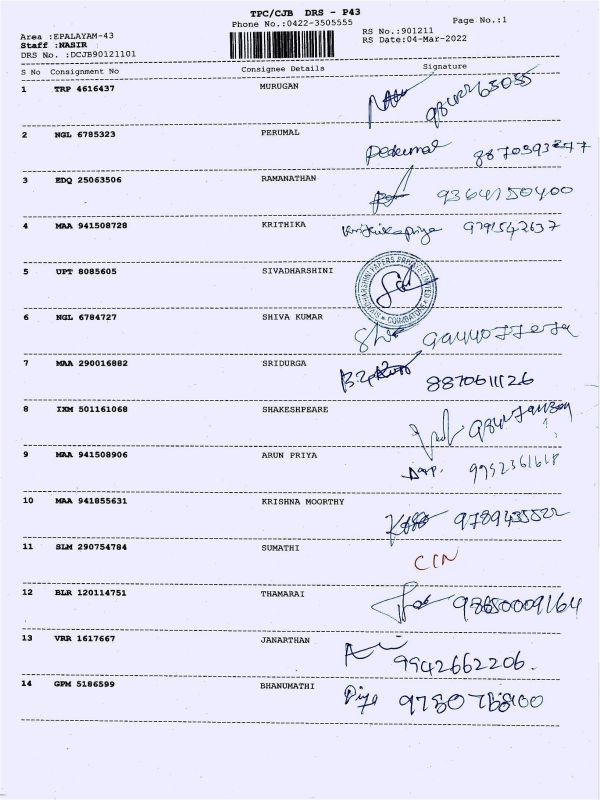 TPC/CJB DRS - P43
Phone No.:0422-3505555
Page No.:1
Area :EPALAYAM-43
RS No.:901211
Staff :NASIR
RS Date:04-Mar-2022
DRS No. :DCJB90121101
S No Consignment No Consignee Details Signature
1 TRP 4616437 MURUGAN
2 NGL 6785323 PERUMAL Perumal
3 EDQ 25063506 RAMANATHAN 9364150400
4 MAA 941508728 KRITHIKA Krithikapriya 9791542637
5 UPT 8085605 SIVADHARSHINI
6 NGL 6784727 SHIVA KUMAR
7 MAA 290016882 SRIDURGA 8870611126
8 IXM 501161068 SHAKESHPEARE
9 MAA 941508906 ARUN PRIYA 9952361618
10 MAA 941855631 KRISHNA MOORTHY 9789435522
11 SLM 290754784 SUMATHI CIN
12 BLR 120114751 THAMARAI
13 VRR 1617667 JANARTHAN 9942662206.
14 GPM 5186599 BHANUMATHI